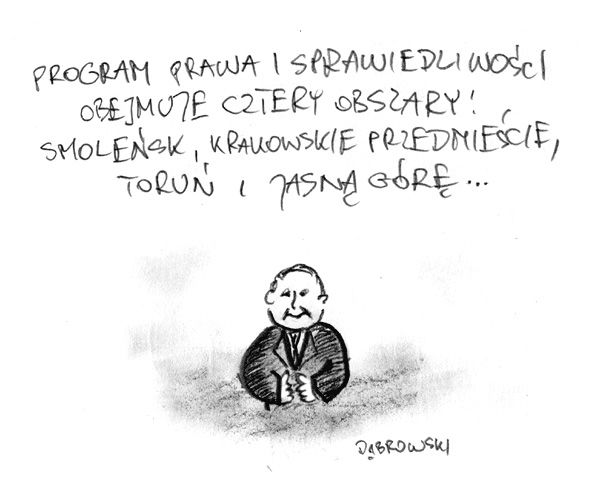 PROGRAM PRAWA I SPRAWIEDLIWOŚCI
OBEJMUJE CZTERY OBSZARY!
SMOLEŃSK, KRAKOWSKIE PRZEDMIEŚCIE,
TORUŃ I JASNĄ GÓRĘ...
DĄBROWSKI